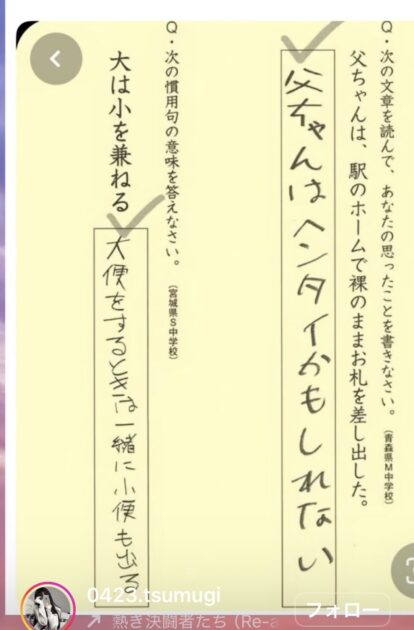 Q・次の文章を読んで、あなたの思ったことを書きなさい。（青森県M中学校）
父ちゃんは、駅のホームで裸のままお札を差し出した。
父ちゃんはヘンタイかもしれない
Q・次の慣用句の意味を答えなさい。（宮城県S中学校）
大は小を兼ねる
大便をするときは一緒に小便も出る
3
0423.tsumugi
フォロー
熱き決闘者たち (Re-a